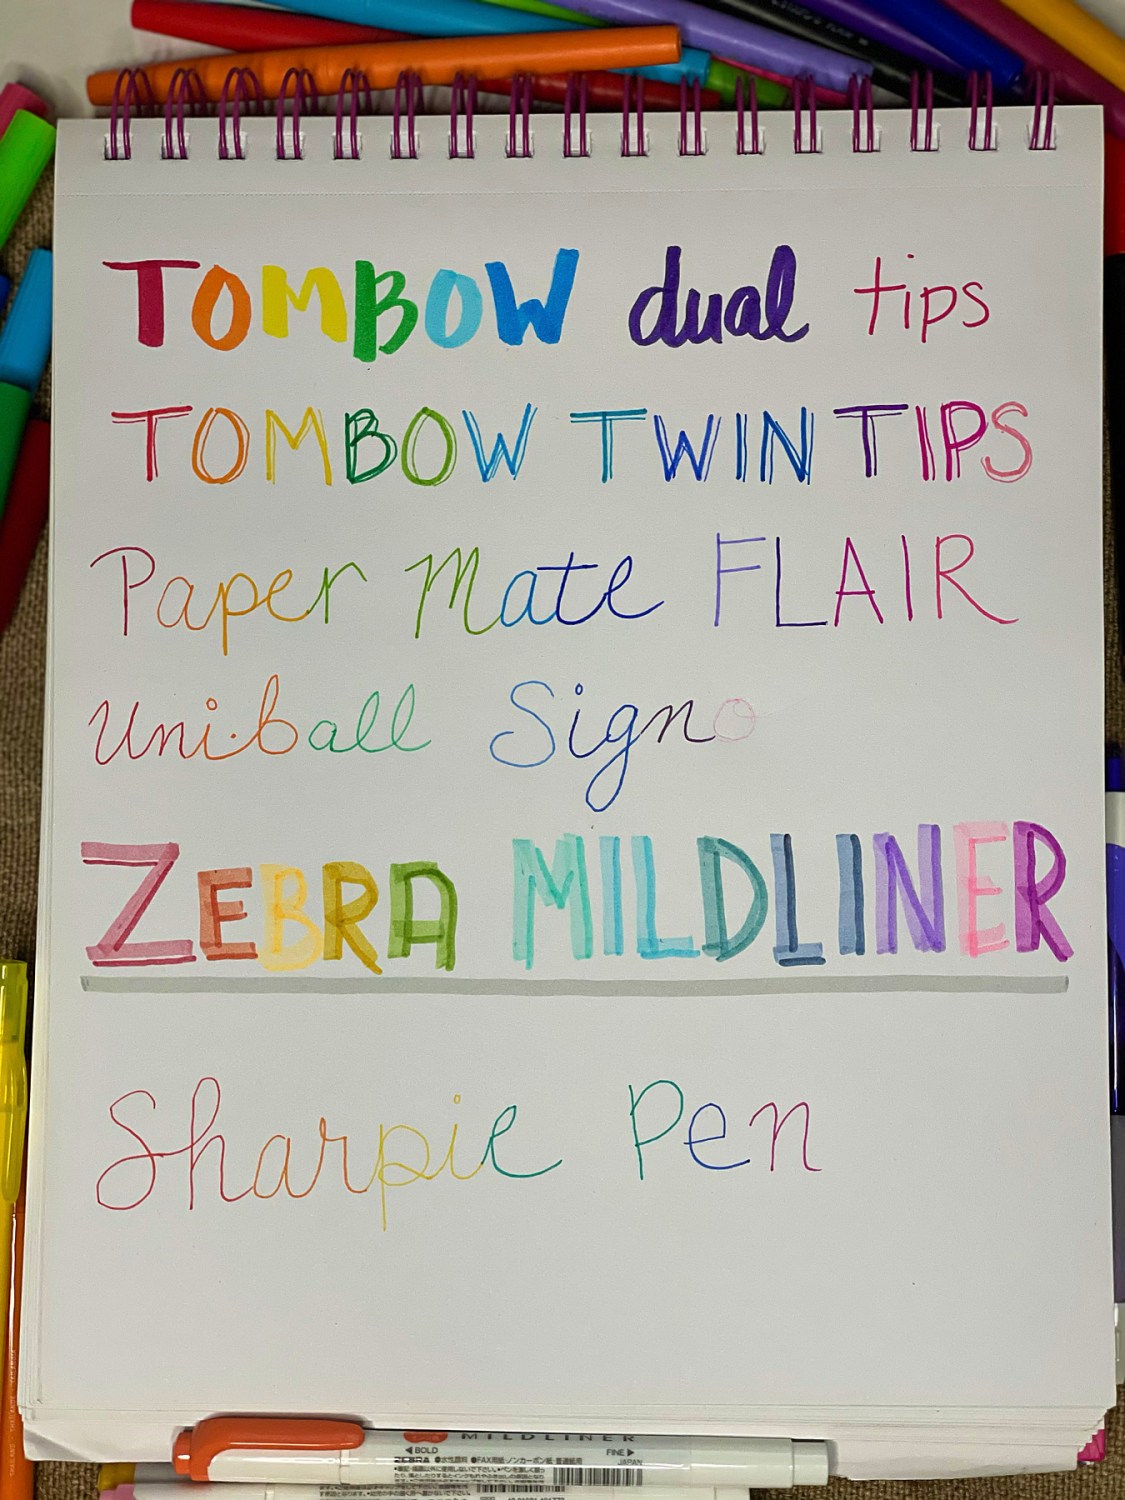 TOMBOW dual tips
TOMBOW TWIN TIPS
Paper Mate FLAIR
Uni·ball Signo
ZEBRA MILDLINER
Sharpie Pen
MILDLINER
◀BOLD FINE▶
ZEBRA ●水性顔料 ●FAX用紙・ノンカーボン紙・普通紙用 JAPAN